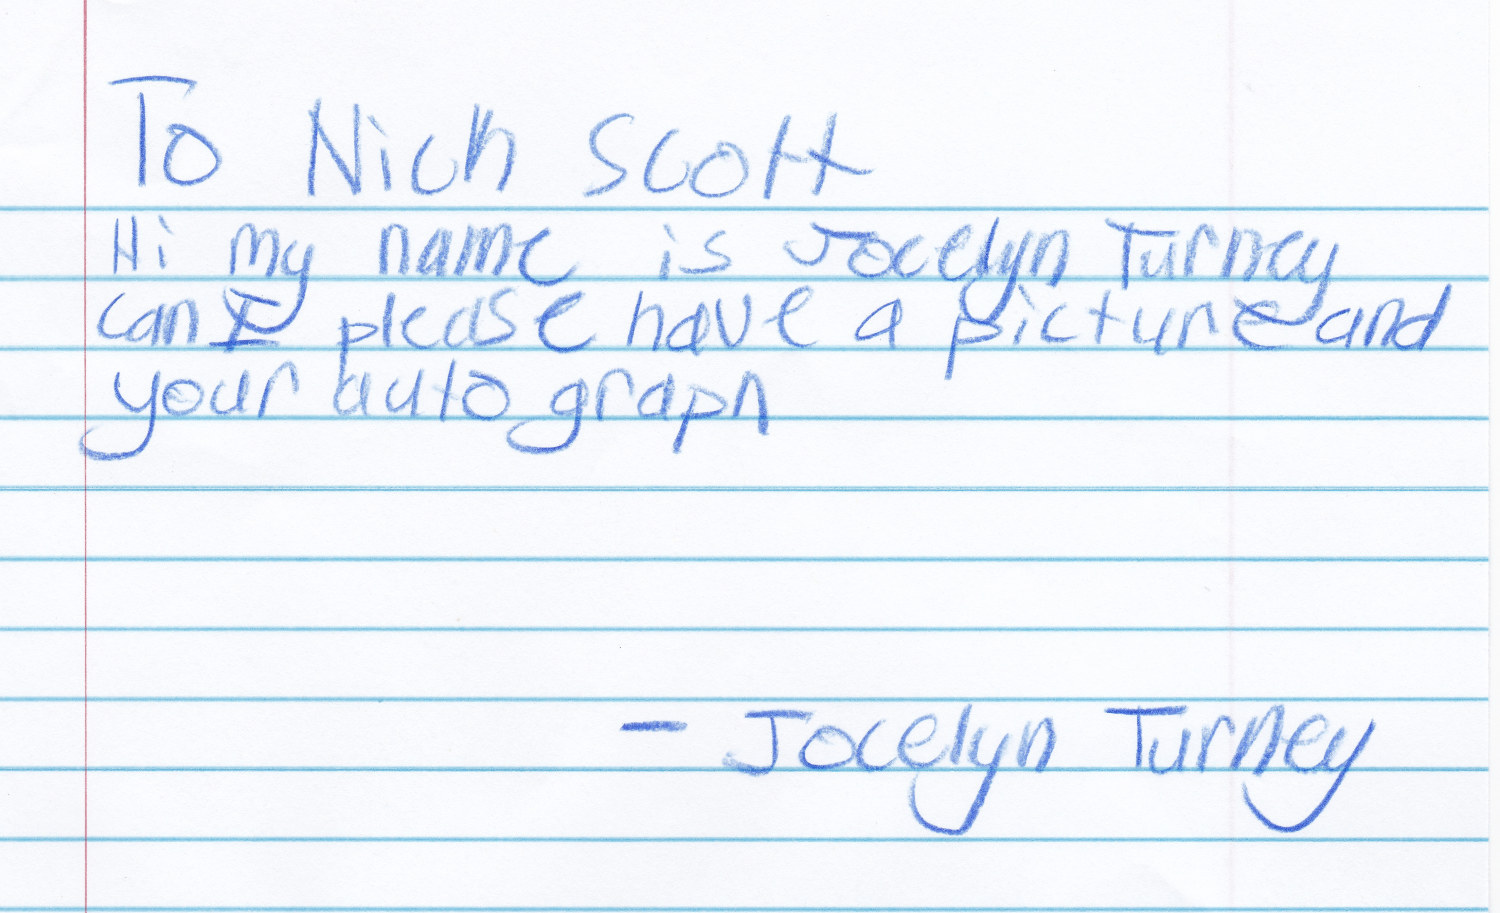 To Nich Scott
Hi my name is Jocelyn Turney
can I please have a picture and
your auto graph
- Jocelyn Turney